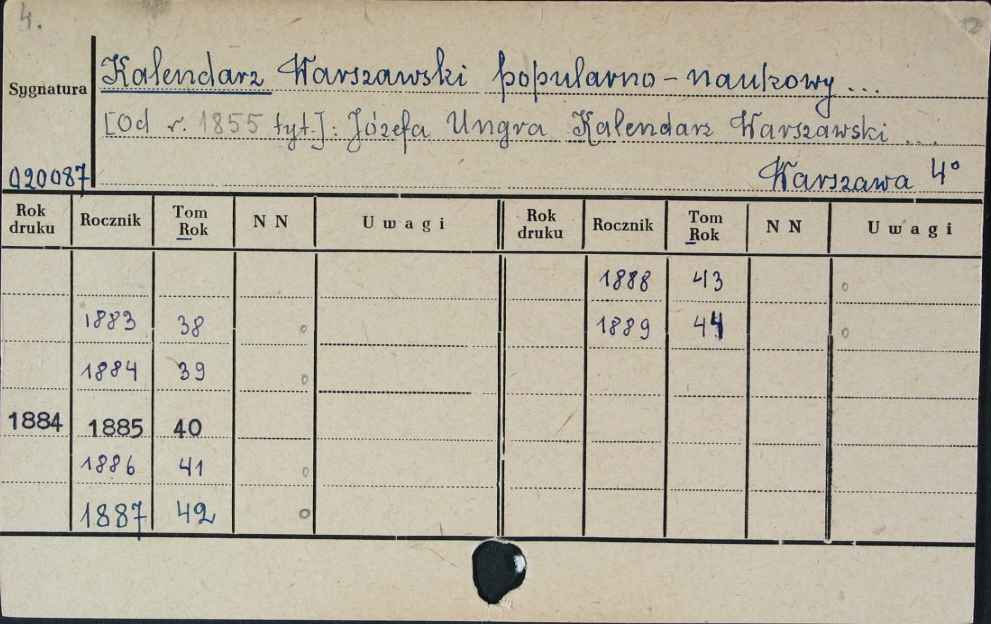 4.
2
Kalendarz Warszawski popularno-naukowy...
Sygnatura
[Od r. 1855 tyt.]: Józefa Ungra Kalendarz Warszawski ...
020087 Warszawa 4°
Rok druku Rocznik Tom Rok NN Uwagi Rok druku Rocznik Tom Rok NN Uwagi
1888 43 o
1883 38 o 1889 44 o
1884 39 o
1884 1885 40
1886 41 o
1887 42 o